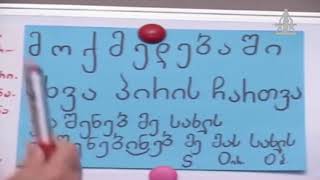 მოქმედებაში
სხვა პირის ჩართვა
ვაშენებ მე სახლს
ვაშენებინებ მე მას სახლს
S Oid Od